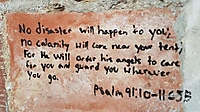 No disaster will happen to you,
no calamity will come near your tent,
For He will order his angels to care
for you and guard you wherever
you go.
Psalm 91:10-11 CSB